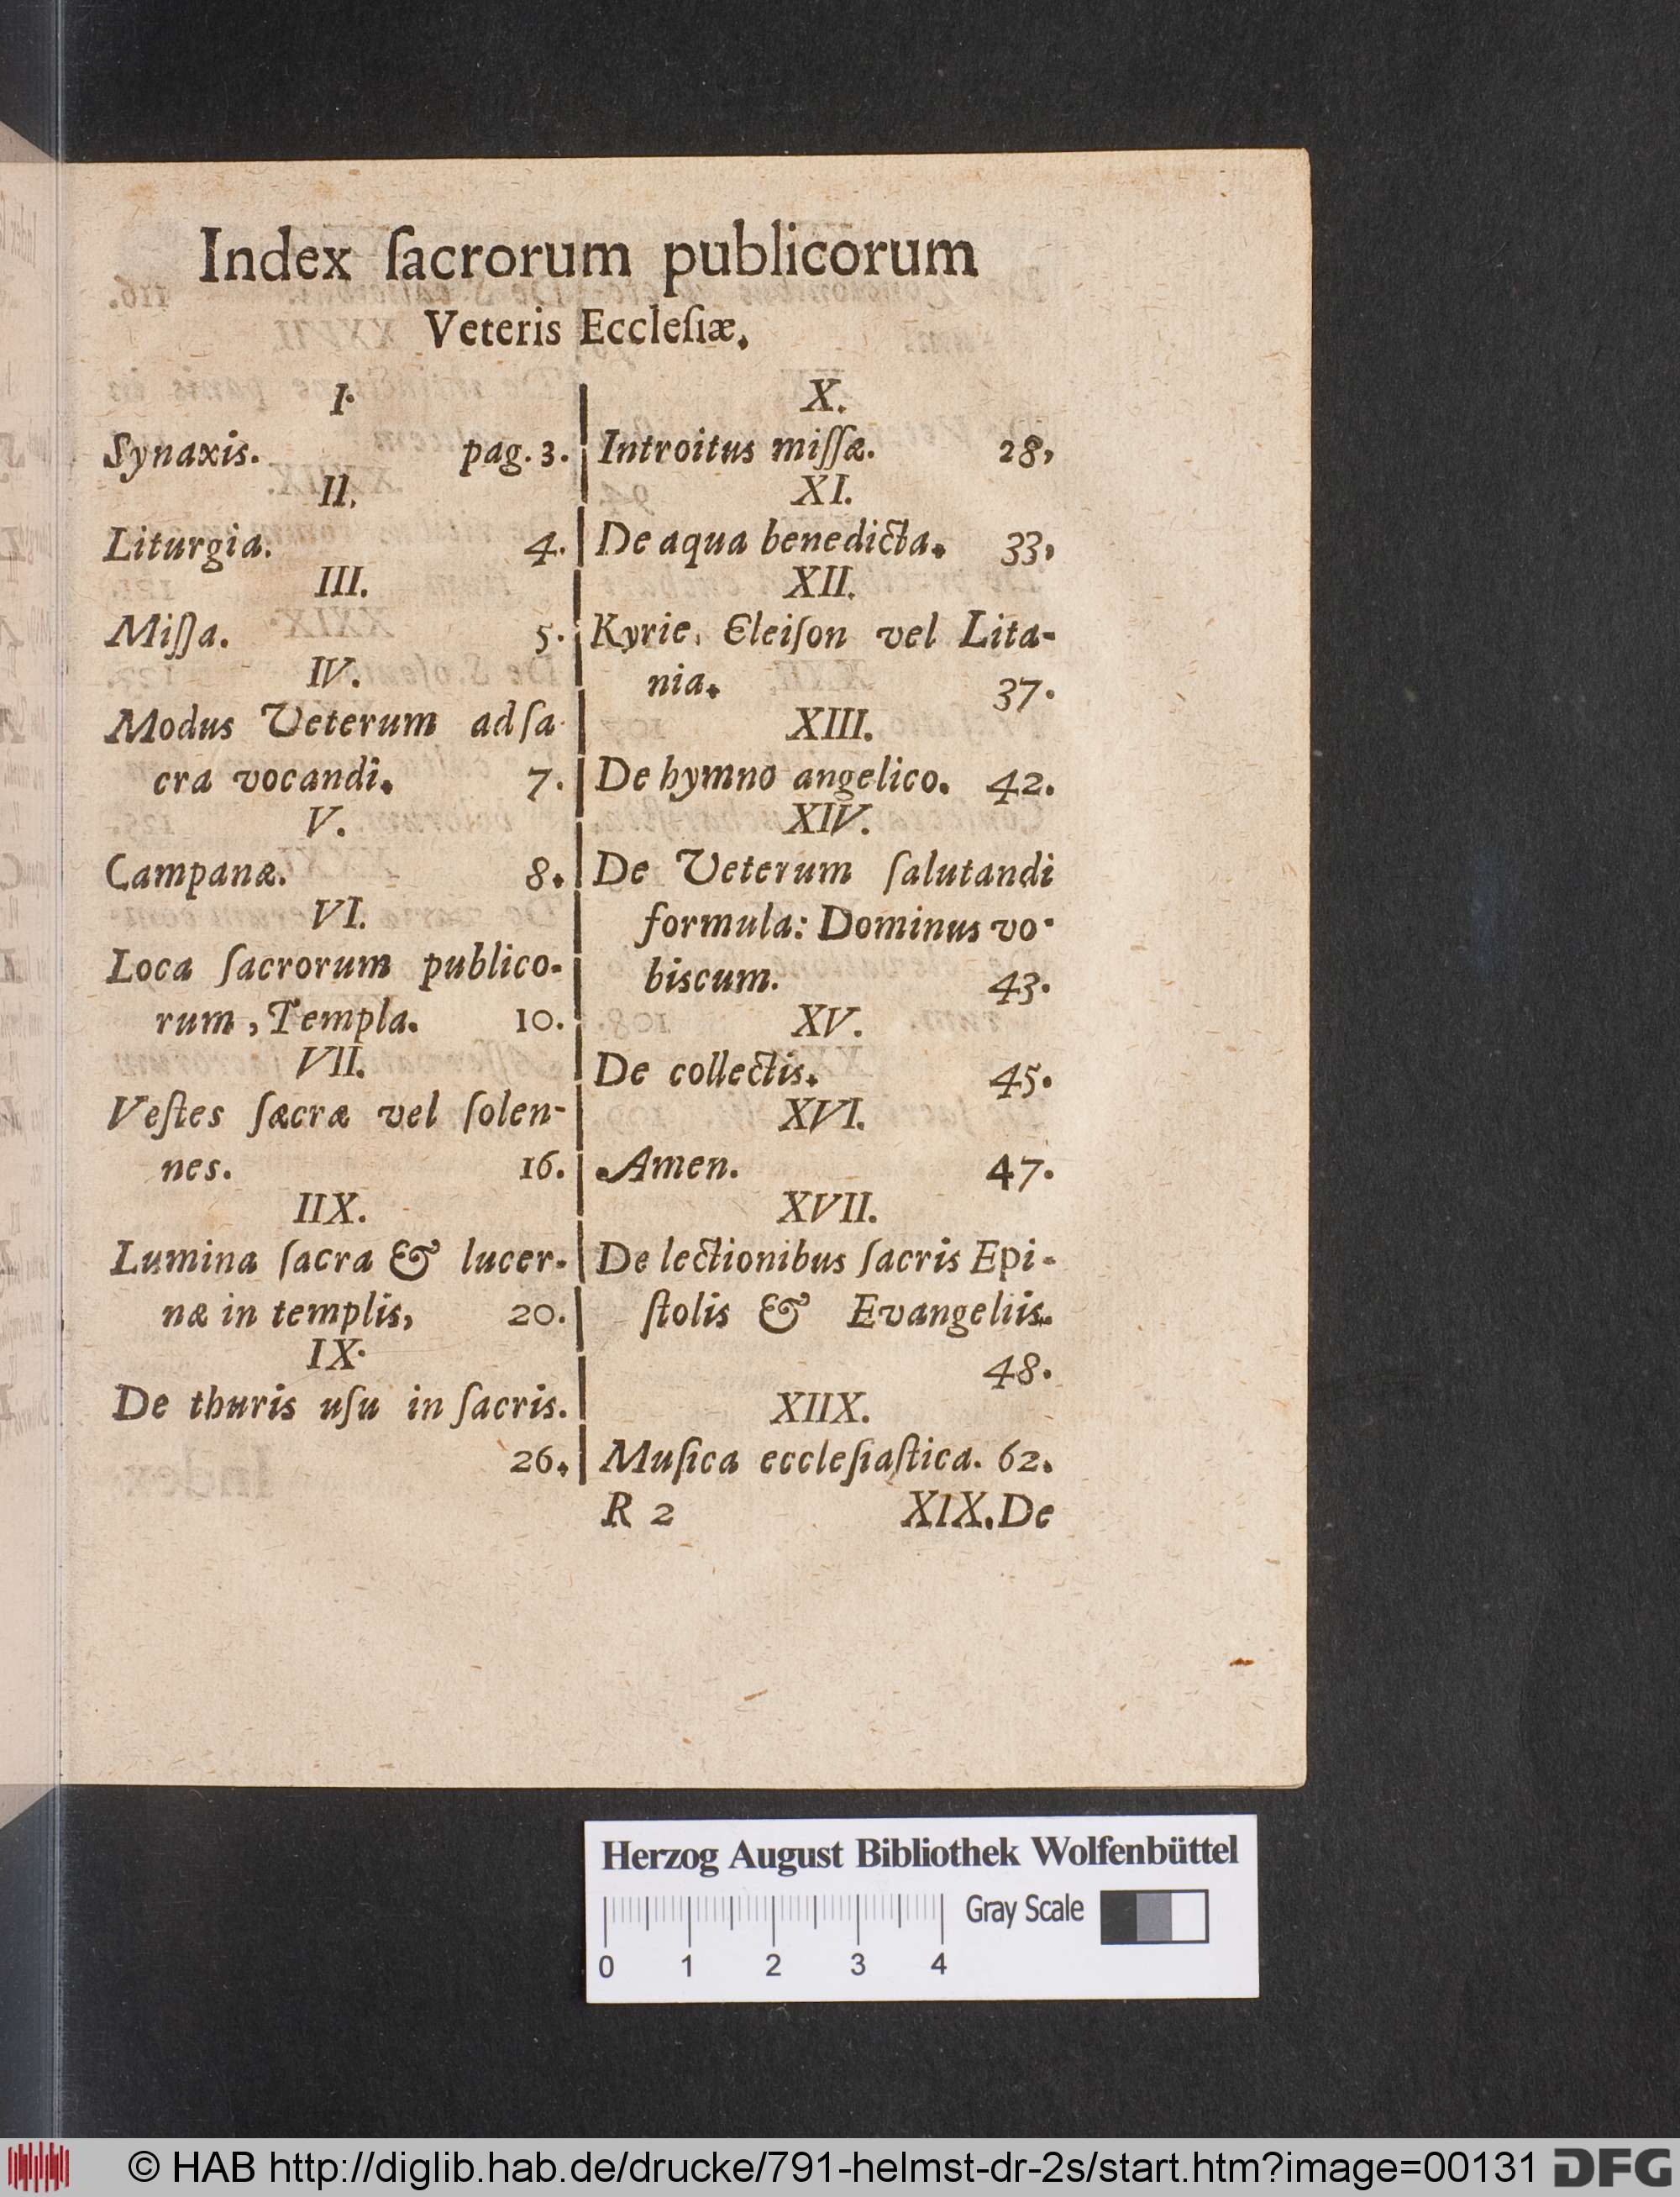 Index ſacrorum publicorum
Veteris Eccleſiæ.
I.
Synaxis. pag. 3.
II.
Liturgia. 4.
III.
Miſſa. 5.
IV.
Modus Veterum ad ſa-
cra vocandi. 7.
V.
Campanæ. 8.
VI.
Loca ſacrorum publico-
rum, Templa. 10.
VII.
Veſtes ſacræ vel ſolen-
nes. 16.
IIX.
Lumina ſacra & lucer-
næ in templis, 20.
IX.
De thuris uſu in ſacris.
26.
X.
Introitus miſſæ. 28,
XI.
De aqua benedicta. 33,
XII.
Kyrie, Eleiſon vel Lita-
nia. 37.
XIII.
De hymno angelico. 42.
XIV.
De Veterum ſalutandi
formula: Dominus vo-
biscum. 43.
XV.
De collectis. 45.
XVI.
Amen. 47.
XVII.
De lectionibus ſacris Epi-
ſtolis & Evangeliis.
48.
XIIX.
Muſica eccleſiaſtica. 62.
R 2 XIX. De
Herzog August Bibliothek Wolfenbüttel
Gray Scale
0 1 2 3 4
© HAB http://diglib.hab.de/drucke/791-helmst-dr-2s/start.htm?image=00131 DFG